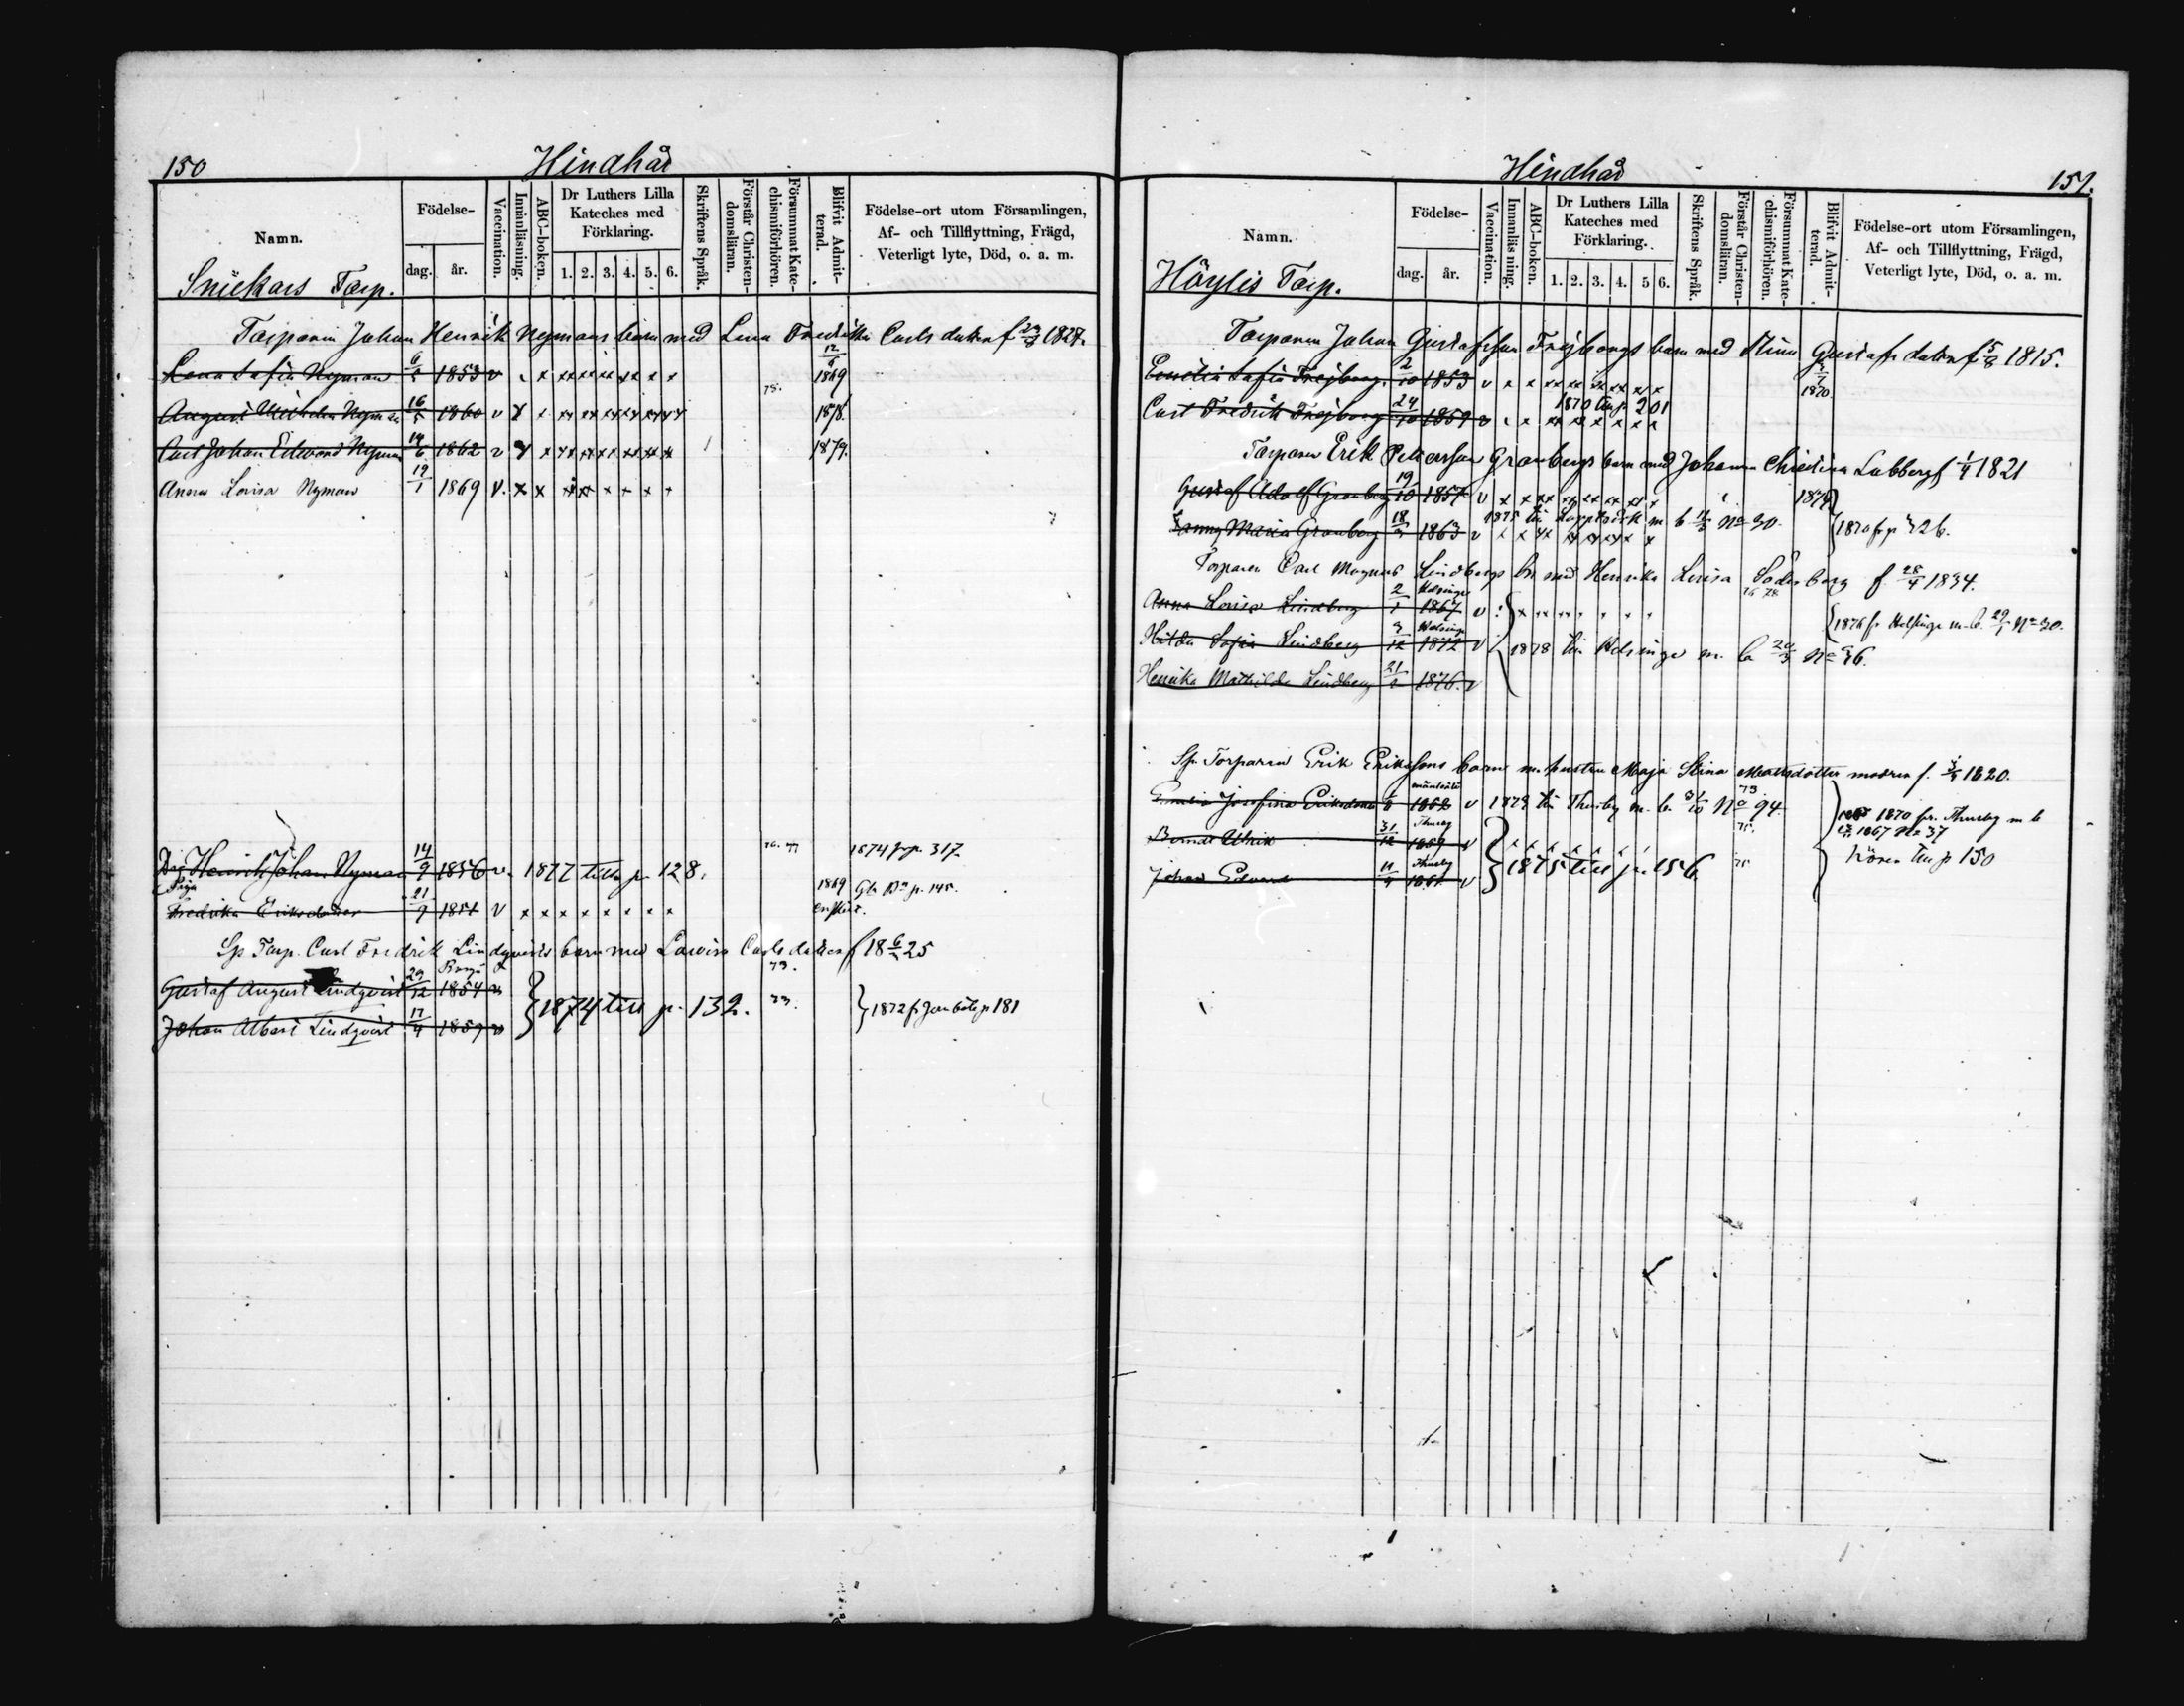 150
Hindhår
Namn.
Födelse-
dag.
år.
Vaccination.
Innanläsning.
ABC-boken.
Dr Luthers Lilla
Kateches med
Förklaring.
1. 2. 3. 4. 5. 6.
Skriftens Språk.
Förstår Christen-
domsläran.
Försummat Kate-
chismiförhören.
Blifvit Admit-
terad.
Födelse-ort utom Församlingen,
Af- och Tillflyttning, Frägd,
Veterligt lyte, Död, o. a. m.
Snickars Torp.
Torparen Johan Henrik Nymans barn med Lena Fredrika Carls dotter f
Lena Sofia Nyman 6/5 1853 v x xx xx xx xx x x 75. 1869
August Wilhelm Nyman 16/5 1860 v x x xx xx xx xx xx 1878.
Carl Johan Edward Nyman 14/6 1862 v x x xx xx x xx xx x 1879.
Anna Lovisa Nyman 19/1 1869 v. x x xx xx x x x x
Drg Henrik Johan Nyman 14/9 1856 v. 1877 till p. 128. 76. 77 1874 fr p. 317
Piga
Fredrika Eriksdotter 21/9 1851 v x x x x x x x x 1869 Gb. p. 145.
enskilt.
Sp Torp. Carl Fredrik Lindqvists barn med Lovisa Carls dotter f 18 6/5 25
Gustaf August Lindqvist 29/12 1854 v 73.
Johan Albert Lindqvist 17/4 1859 v } 1874 till p. 132. 73. } 1872 fr Janböle p 181
Hindhår
151.
Namn.
Födelse-
dag.
år.
Vaccination.
Innanläsning.
ABC-boken.
Dr Luthers Lilla
Kateches med
Förklaring.
1. 2. 3. 4. 5 6.
Skriftens Språk.
Förstår Christen-
domsläran.
Försummat Kate-
chismiförhören.
Blifvit Admit-
terad.
Födelse-ort utom Församlingen,
Af- och Tillflyttning, Frägd,
Veterligt lyte, Död, o. a. m.
Höylis Torp.
Torparen Johan Gustafsson Frejborgs barn med Stina Gustafs dotter f 5/8 1815.
Emelia Sofia Frejborg. 2/10 1853 v x x xx xx xx xx x 1870.
1870 till p. 201
Carl Fredrik Frejborg 24/10 1859 v x x xx xx x x x
Torparen Erik Pettersson Granbergs barn med Johanna Christina Lubberg f 1/4 1821
Gustaf Adolf Granberg 19/10 1857 v x x xx xx xx xx x 1874
1875 till m. b No 30.
Fanny Maria Granberg 18/3 1863 v x x xx xx xx x x } 1870 fr p 326.
Torparen Carl Magnus Lindbergs bn med Henrika Lovisa Söderberg f. 28/4 1834.
Helsinge 76 78
Anna Lovisa Lindberg 2/1 1867 v
Helsinge
{ 1876 fr. Helsinge m.b. 29/1 No 30.
Hilda Sofia Lindberg 3/12 1872 v { 1878 till Helsinge m. b 20/3 No 36.
Henrika Mathilda Lindberg 21/2 1876. v
Sp. Torparen Erik Erikssons barn m. hustru Maja Stina Matsdotter modren f. 1820.
Mäntsälä 73
Emelia Josefina Eriksdotter 1/8 1862 v 1873 till Thusby m. b. 31/10 No 94.
1870 fr. Thusby m b
Thusby 75.
Berndt Ulrik 31/12 1859 v
1867 No 37
Thusby
Johan Edvard 11/4 1861 v } 1875 till p. 156. 75
till p 150